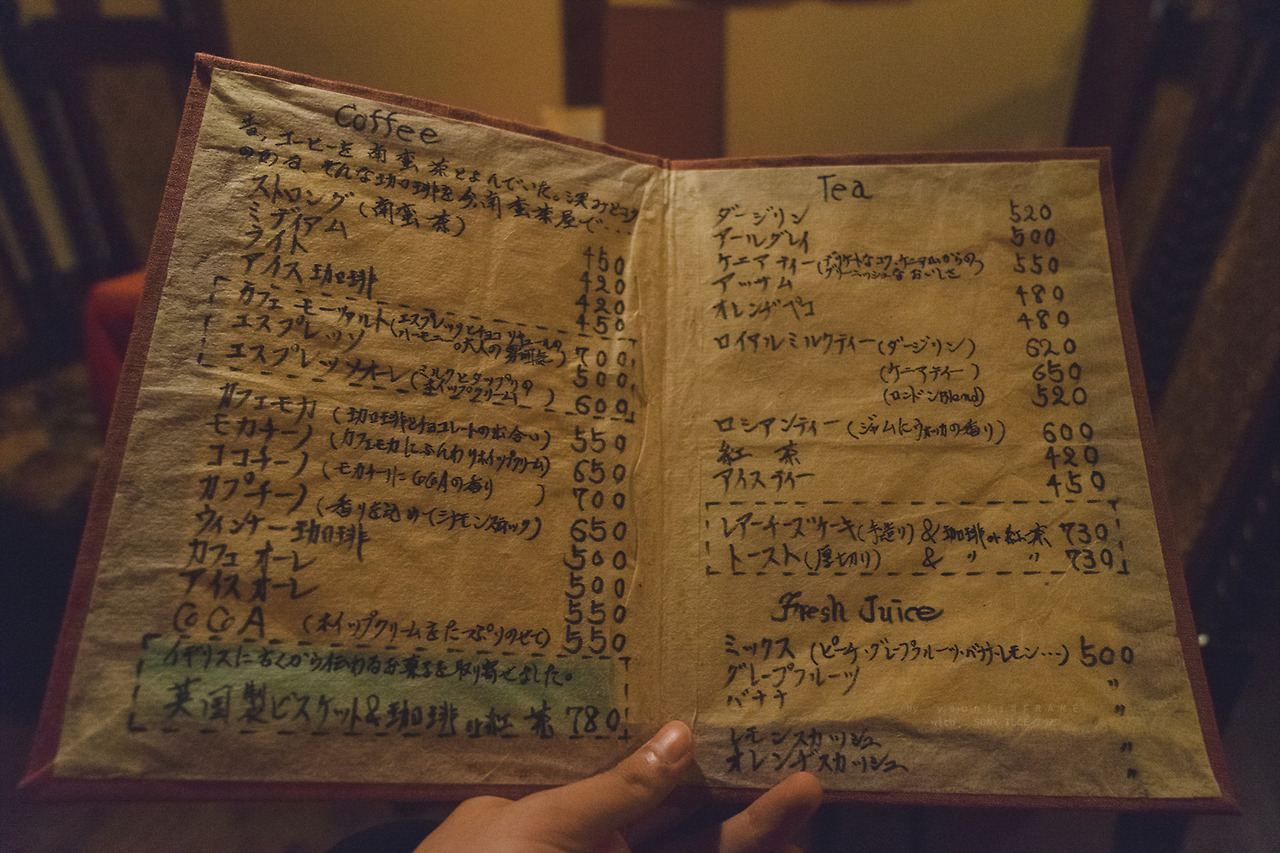 Coffee
昔，コーヒーを南蛮茶とよんでいた。深みとコク
のある、そんな珈琲を今、南蛮茶屋で...
ストロング(南蛮茶) 450
ミディアム 420
ライト 420
アイス珈琲 450
カフェモーツァルト(エスプレッソとチョコリキュールの ハーモニー。大人の雰囲気) 700
エスプレッソ 500
エスプレッソオーレ(ミルクとタップリの ホイップクリーム) 600
カフェモカ (珈琲とチョコレートの出合い) 550
モカチーノ (カフェモカにふんわりホイップクリーム) 650
ココチーノ (モカチーノにCoCoAの香り) 700
カプチーノ (香りを込めて(シナモンスティック) 650
ウィンナー珈琲 500
カフェオーレ 500
アイスオーレ 550
CoCoA (ホイップクリームをたっぷりのせて) 550
イギリスに古くから伝わるお菓子を取り寄せました。
英国製ビスケット&珈琲or紅茶 780
Tea
ダージリン 520
アールグレイ 500
ケニアティー(デリケートなコク、ケニア山からの グリーニッシュなおいしさ) 550
アッサム 480
オレンヂペコ 480
ロイアルミルクティー(ダージリン) 620
(ケニアティー) 650
(ロンドンBlend) 520
ロシアンティー (ジャムにウォッカの香り) 600
紅茶 420
アイスティー 450
レアーチーズケーキ(手造り)&珈琲or紅茶 730
トースト(厚切り) & 〃 〃 730
Fresh Juice
ミックス (ピーチ・グレープフルーツ・バナナ・レモン...) 500
グレープフルーツ 〃
バナナ 〃
レモンスカッシュ 〃
オレンヂスカッシュ 〃